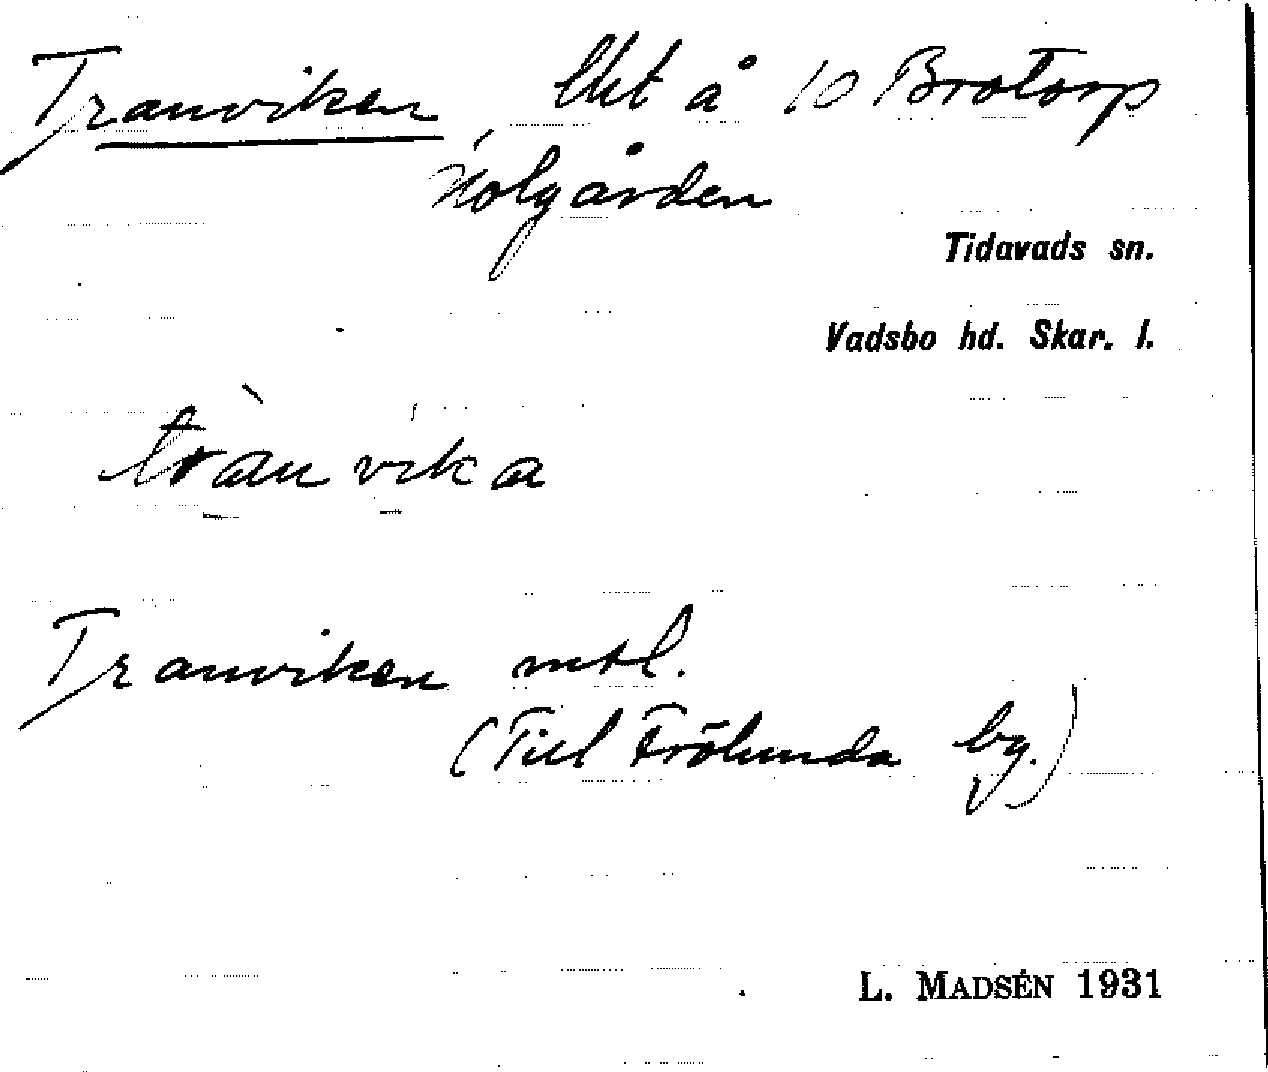 Tranviken lht å 10 Brotorp
Holgården
Tidavads sn.
Vadsbo hd. Skar. l.
trànvika
Tranviken mtl.
(Till Frölunda by.)
L. MADSÉN 1931